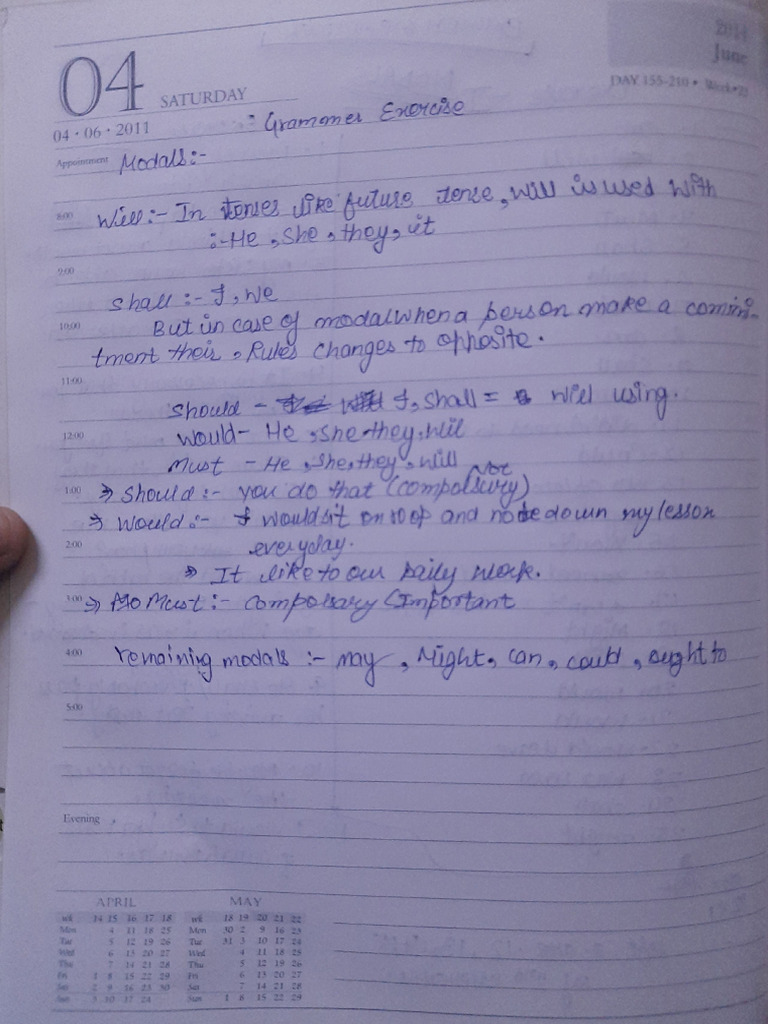 2011
June
04 SATURDAY
DAY 155-210 • Week 22
04 • 06 • 2011
:- Grammer Exercise
Appointment Modals:-
8:00 Will:- In tenses like future tense, will is used with
:- He, She, they, it
9:00
Shall :- I, We
10:00 But in case of modal when a person make a commi-
tment their, Rules changes to opposite.
11:00
Should - I, shall = will using.
12:00 would- He, she, they, will
Must - He, She, they, will
Not
1:00 → Should :- you do that (compolsury)
→ Would :- I would sit on roof and note down my lesson
2:00 everyday.
→ It like to our Daily work.
3:00 → Must :- compolsary (Important
4:00 remaining modals :- may, Might, can, could, ought to
5:00
Evening
APRIL MAY
wk 14 15 16 17 18 wk 18 19 20 21 22
Mon 4 11 18 25 Mon 30 2 9 16 23
Tue 5 12 19 26 Tue 31 3 10 17 24
Wed 6 13 20 27 Wed 4 11 18 25
Thu 7 14 21 28 Thu 5 12 19 26
Fri 1 8 15 22 29 Fri 6 13 20 27
Sat 2 9 16 23 30 Sat 7 14 21 28
Sun 3 10 17 24 Sun 1 8 15 22 29